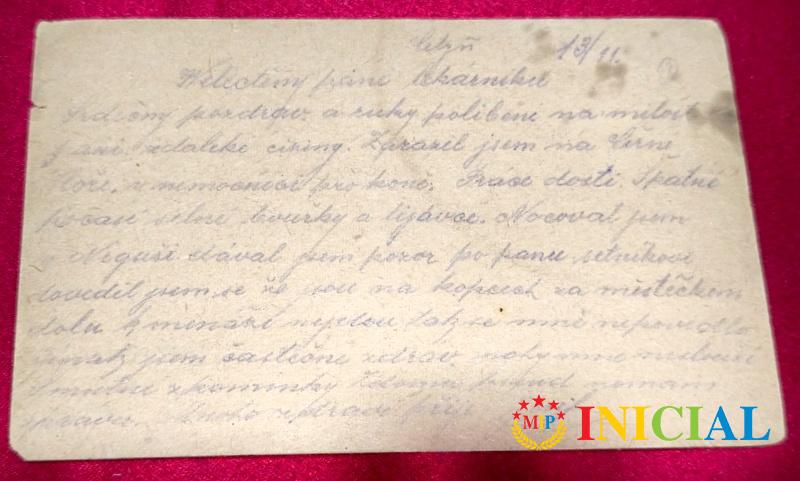 Cetyň 13/11.
Velectěný pane lékárníku
Srdečný pozdrav a ruky políbení na milost
paní z daleké ciziny. Zarazil jsem na Černé
Hoře, v nemocnici pro koně. Práce dosti. Špatné
počasí silné bouřky a lijávce. Nocoval jsem
v Neguši dával jsem pozor po panu setníkovi
dověděl jsem se že jsou na kopcích za městečkem
dolu z menáží nejdou tak se mně nepovedlo
jsem částečně zdráv, nohy mne
smutné vzpomínky Z domu pokud nemám
zpráv.
MJP
INICIAL